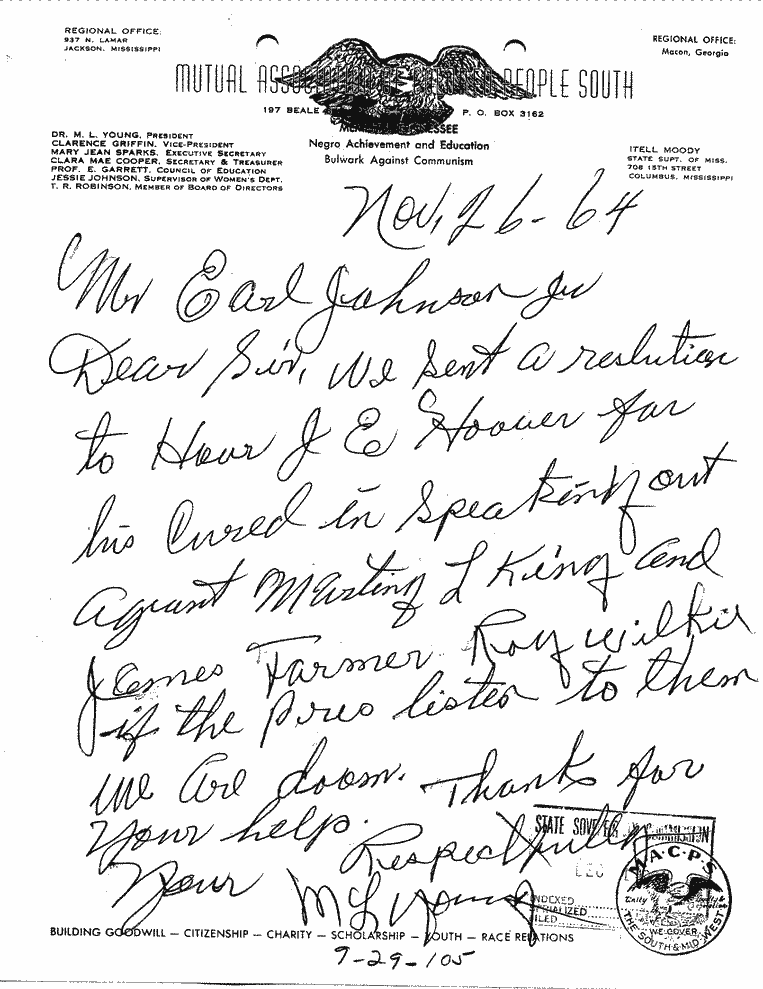 REGIONAL OFFICE:
937 N. LAMAR
JACKSON, MISSISSIPPI
REGIONAL OFFICE:
Macon, Georgia
MUTUAL PEOPLE SOUTH
197 BEALE P. O. BOX 3162
Negro Achievement and Education
Bulwark Against Communism
DR. M. L. YOUNG, PRESIDENT
CLARENCE GRIFFIN, VICE-PRESIDENT
MARY JEAN SPARKS, EXECUTIVE SECRETARY
CLARA MAE COOPER, SECRETARY & TREASURER
PROF. E. GARRETT, COUNCIL OF EDUCATION
JESSIE JOHNSON, SUPERVISOR OF WOMEN'S DEPT.
T. R. ROBINSON, MEMBER OF BOARD OF DIRECTORS
ITELL MOODY
STATE SUPT. OF MISS.
708 15TH STREET
COLUMBUS, MISSISSIPPI
Nov, 26-64
Mr Earl Johnson Jr
Dear Sir, We sent a reslution
to Hour J E Hoover for
his in speaking out
Marting L King and
James Farmer Roy wilkis
if the Pres listen to them
we are doom. Thanks for
your help.
Respectfully
Your M L Young
STATE SOVEREIGNTY COMMISSION
INDEXED
SERIALIZED
FILED
M·A·C·P·S
WE COVER
THE SOUTH & MID-WEST
BUILDING GOODWILL — CITIZENSHIP — CHARITY — SCHOLARSHIP — YOUTH — RACE RELATIONS
9-29-105